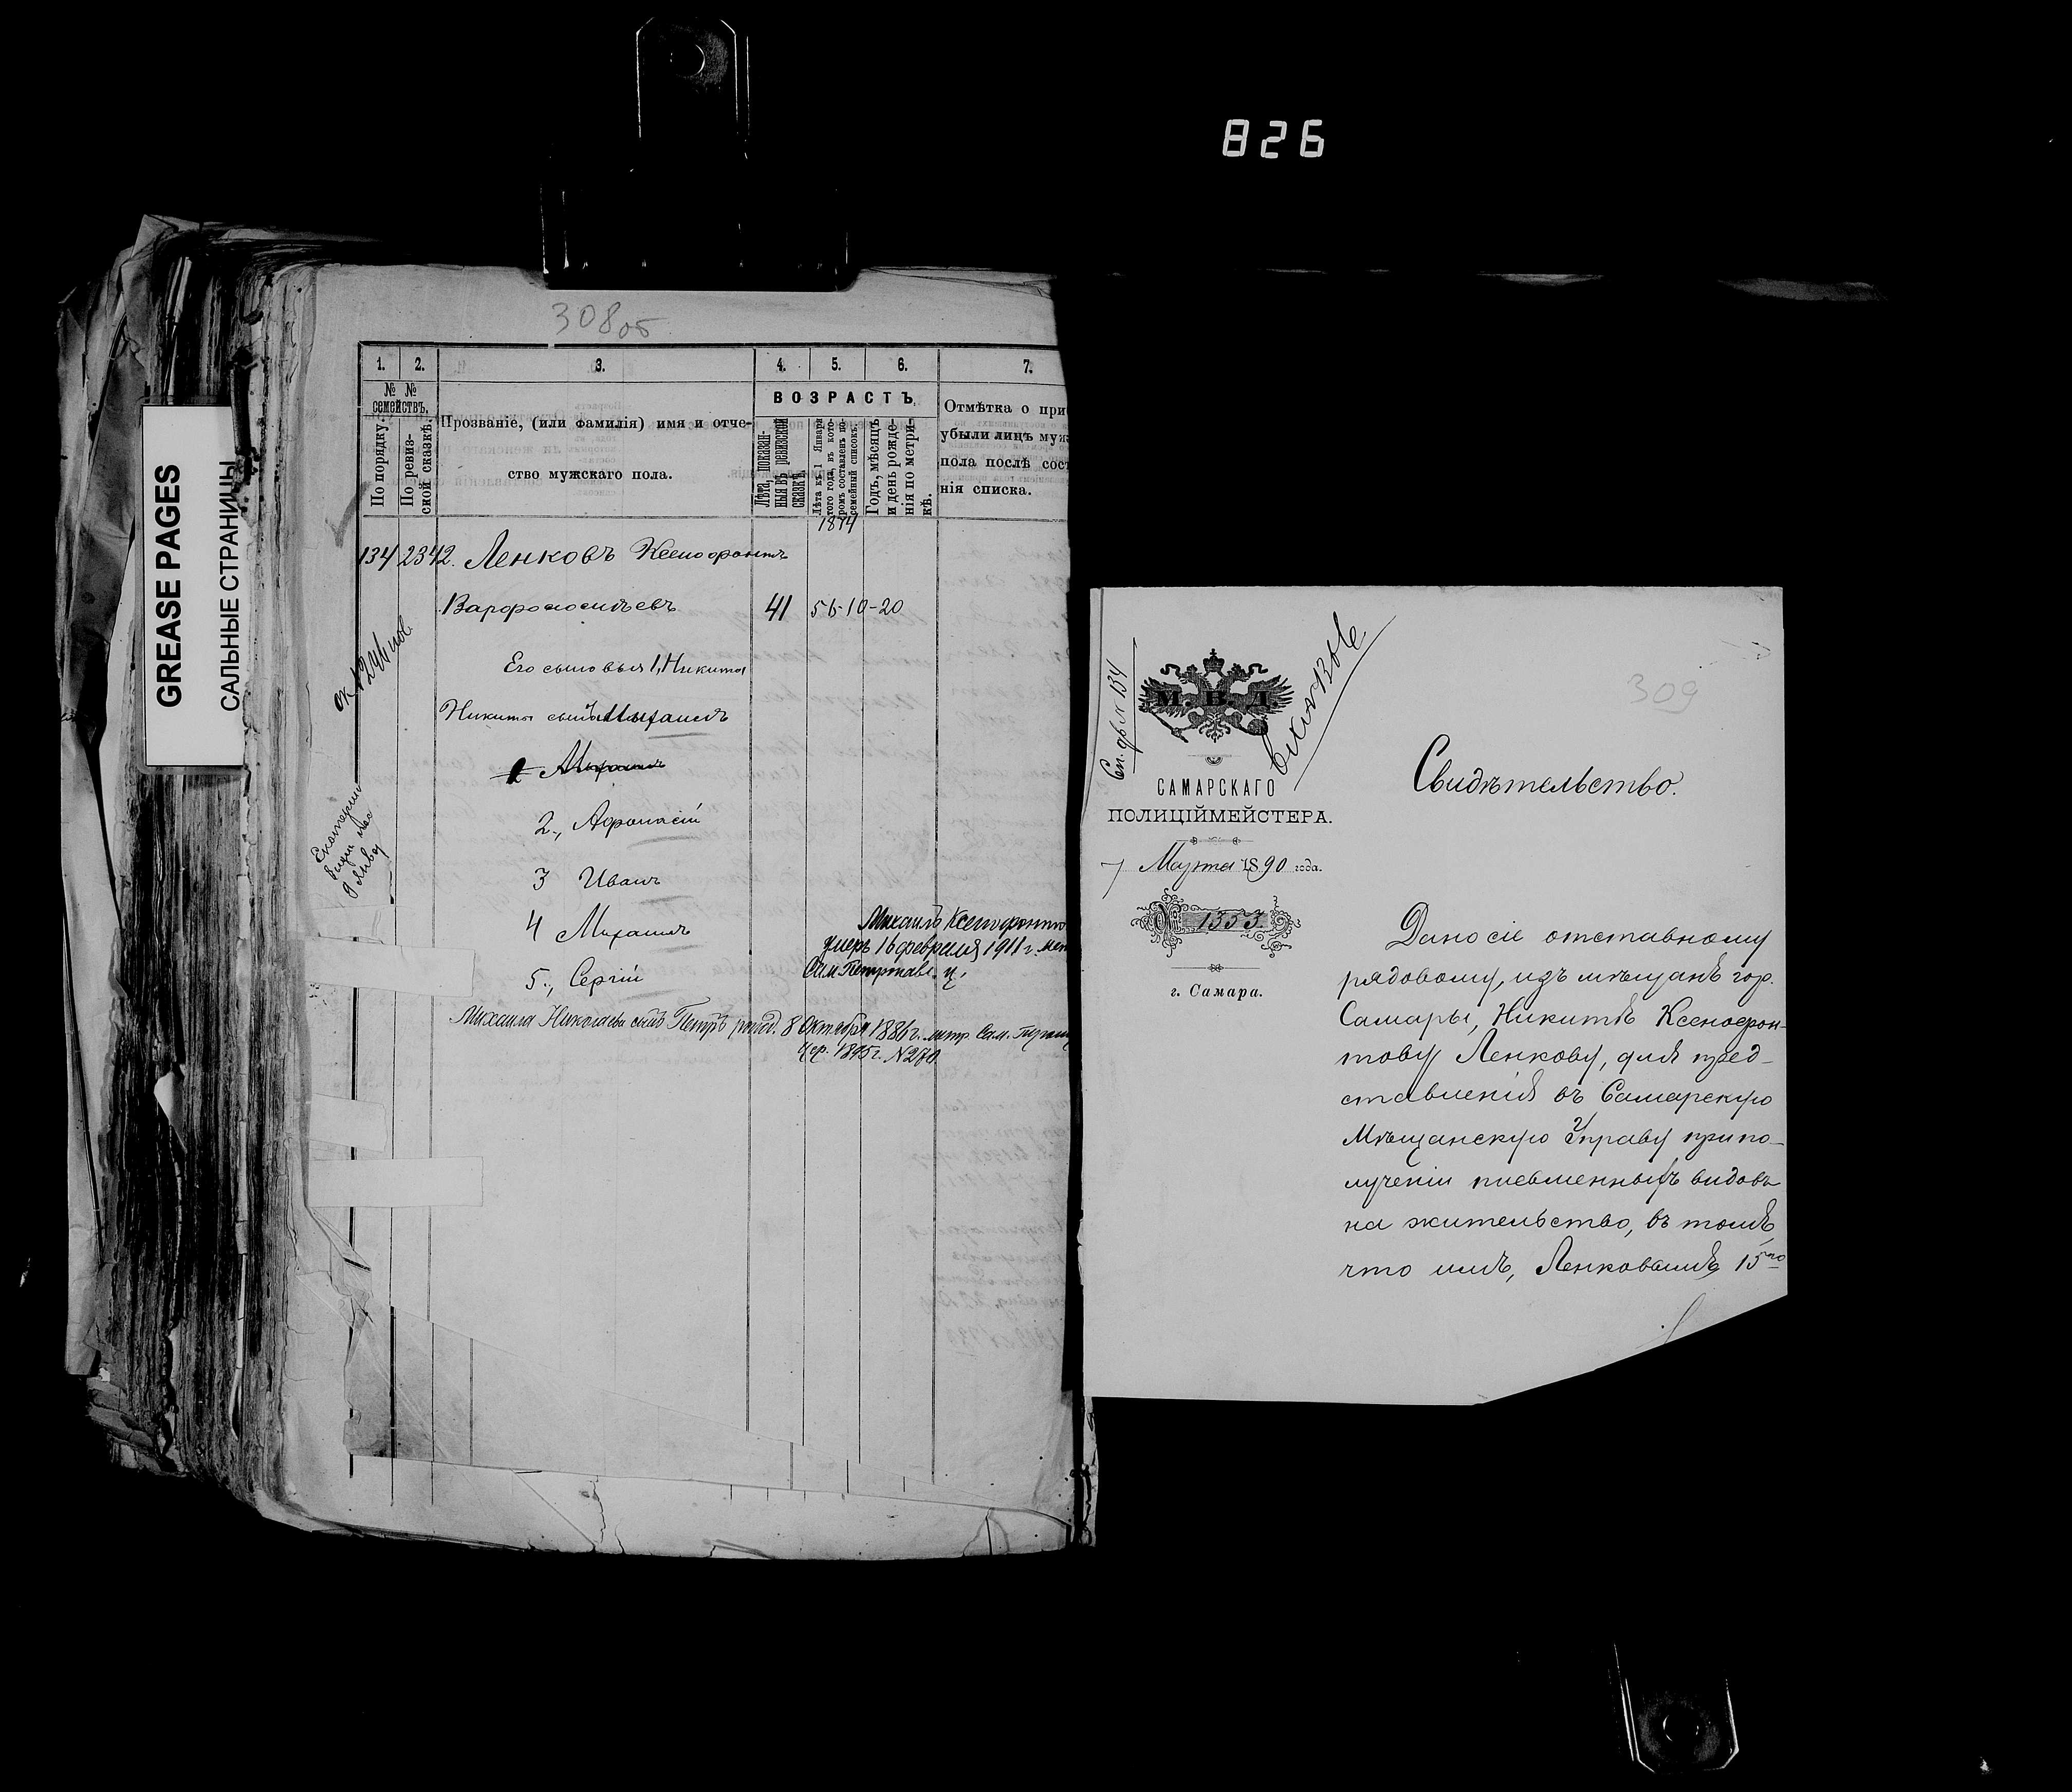 826
GREASE PAGES
САЛЬНЫЕ СТРАНИЦЫ
308об
1. 2. 3. 4. 5. 6. 7.
№ №
семействъ.
По порядку.
По ревиз-
ской сказкѣ.
Прозваніе, (или фамилія) имя и отче-
ство мужскаго пола.
ВОЗРАСТЪ.
Лѣта, показан-
ныя въ ревизской
сказкѣ
Лѣта къ 1 Января
того года, въ кото-
ромъ составленъ по-
семейный списокъ.
Годъ, мѣсяцъ
и день рожде-
нія по метри-
кѣ.
Отмѣтка о при
убыли лицъ муж
пола послѣ сост
нія списка.
1874
134 2342. Ленковъ Ксенофонтъ
Варфоломѣевъ 41 56-10-20
Его сыновья 1, Никита
Никиты сынъ Михаилъ
2 Михаилъ
2., Афонасій
3 Иванъ
4 Михаилъ
5., Сергій
Михаилъ Ксенофонто
умеръ 16 февраля 1911 г. мет
Сам. Петропавл. ц.
Михаила Николаева сынъ Петръ рожд. 8 Октября 1886 г. метр. Сам.
цер. 1895 г. N270
Сп. дѣл N 134
М. В. Д.
САМАРСКАГО
ПОЛИЦІЙМЕЙСТЕРА.
7 Марта 1890 года.
№ 1353.
г. Самара.
309
Свидѣтельство.
Дано сіе отставному
рядовому, изъ мѣщанъ гор.
Самары, Никитѣ Ксенофон-
тову Ленкову, для пред-
ставленія въ Самарскую
Мѣщанскую Управу при по-
лученіи письменныхъ видовъ
на жительство, въ томъ,
что имъ, Ленковымъ, 15го